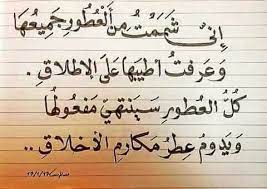 إِنِّي شَمَمْتُ مِنَ الْعُطُورِ جَمِيعَهَا
وَعَرَفْتُ أَطْيَبَهَا عَلَى الإِطْلَاقِ .
كُلُّ الْعُطُورِ سَيَنْتَهِي مَفْعُولُهَا
وَيَدُومُ عِطْرُ مَكَارِمِ الأَخْلَاقِ ..